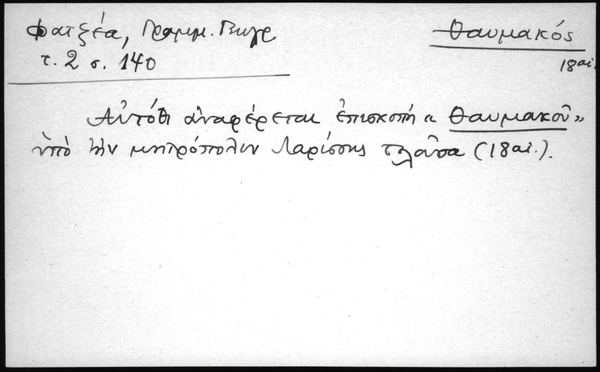 Φατζέα, Γραμμ. Γεωγρ
τ. 2 σ. 140
Θαυμακός
18 αἰ.
Αὐτόθι ἀναφέρεται ἐπισκοπή « Θαυμακοῦ »
ὑπὸ τὴν μητρόπολιν Λαρίσσης τελοῦσα (18 αἰ.).